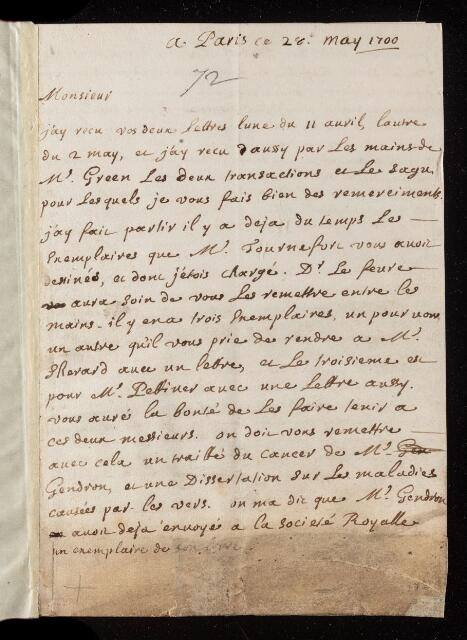 A Paris ce 28. may 1700
72
Monsieur
j'ay recu vos deux Lettres lune du 11 avril, lautre
du 2 may, et j'ay recu d'aussy par Les mains de
Mr. Green Les deux transactions et Le Sagu,
pour Lesquels je vous fais bien des remerciments.
j'ay fait partir il y a deja du temps Les
Exemplaires que Mr. Tournefort vous avoit
destinés, et dont j'etois chargé. Dr. Le feure
aura soin de vous Les remettre entre les
mains. il y en a trois Exemplaires, un pour vous
un autre qu'il vous prie de rendre a Mr.
Sherard avec un lettre, et Le troisieme est
pour Mr. Pettiver avec une Lettre aussy.
vous auré la bonté de Les faire tenir a
ces deux messieurs. on doit vous remettre
avec cela un traitté du Cancer de Mr.
Gendron, et une Dissertation sur Les maladies
causées par les vers. on ma dit que Mr. Gendron
avoit deja envoyé a la Societé Royalle
un exemplaire de son livre